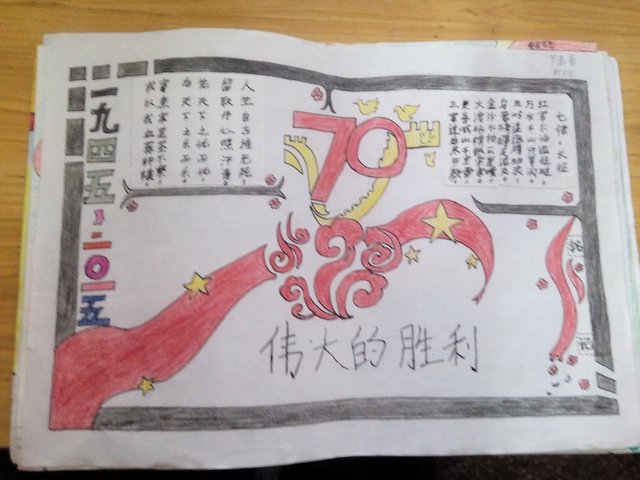 一九四五,二〇一五
人生自古谁无死,
留取丹心照汗青。
先天下之忧而忧,
后天下之乐而乐。
寄意寒星荃不察,
我以我血荐轩辕。
70
七律·长征
红军不怕远征难,
万水千山只等闲。
五岭逶迤腾细浪,
乌蒙磅礴走泥丸。
金沙水拍云崖暖,
大渡桥横铁索寒。
更喜岷山千里雪,
三军过后尽开颜。
铭记
伟大的胜利